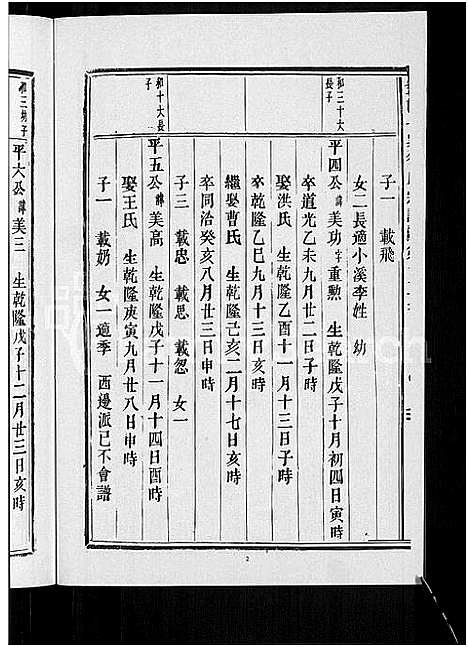 子一 載飛
女二 長適小溪李姓 幼
和三十大長子
平四公 諱 美功 字 重勲 生乾隆戊子十月初四日寅時
卒道光乙未九月廿二日子時
娶洪氏 生乾隆乙酉十一月十三日子時
卒乾隆乙巳九月十三日亥時
繼娶曹氏 生乾隆己亥二月十七日亥時
卒同治癸亥八月廿三日申時
子三 載忠 載思 載忽 女一
和十大長子
平五公 諱 美高 生乾隆戊子十一月十四日酉時
娶王氏 生乾隆庚寅九月廿八日申時
子一 載奶 女一適季 西邊派已不會譜
2
平六公 諱 美三 生乾隆戊子十二月廿三日亥時